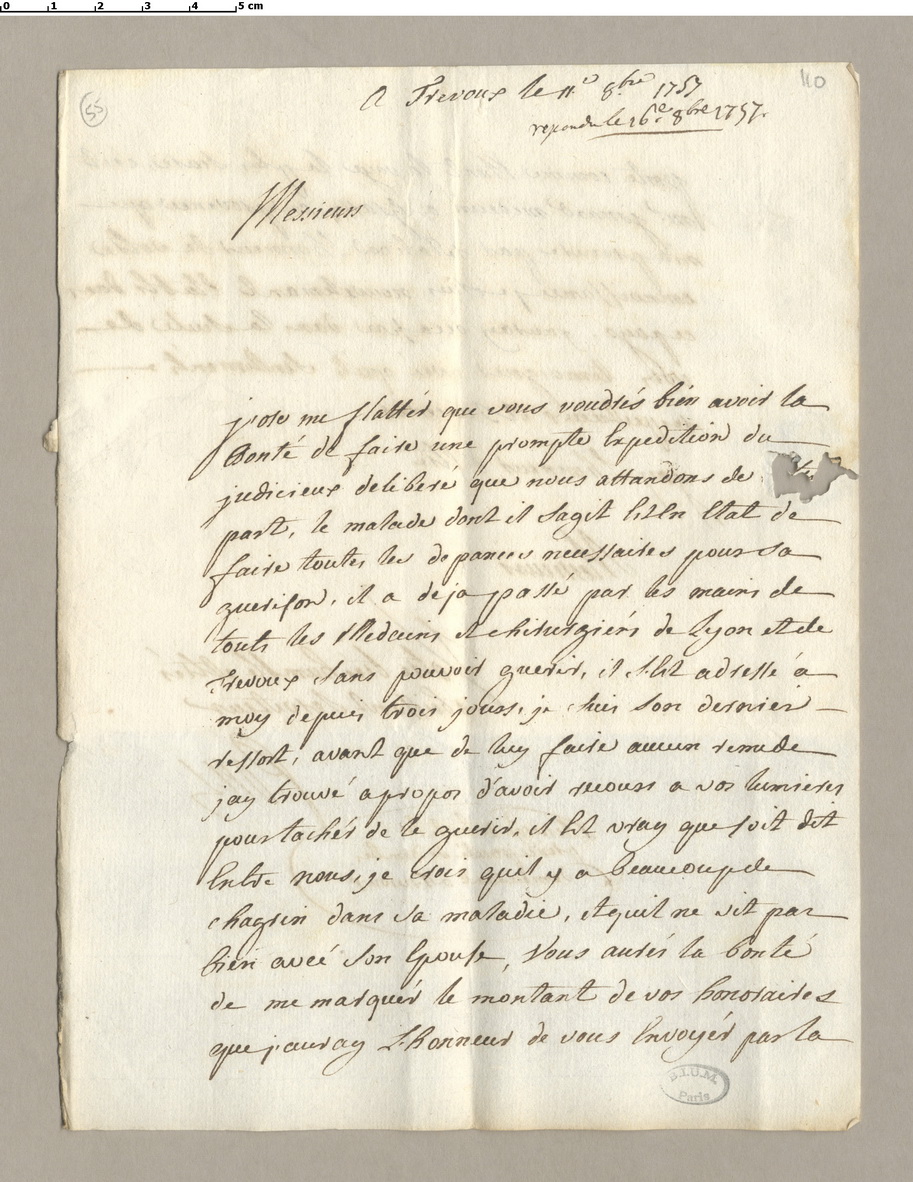 0 1 2 3 4 5 cm
55
110
A Trevoux le 11e 8bre 1757
repondu le 16e 8bre 1757.
Messieurs
j'ose me flattér que vous voudrés bién avoir la
Bonté de faire une prompte Expedition du
judicieux deliberé que nous attandons de
part, le malade dont il sagit Est En Etat de
faire toutes les depances necessaires pour sa
guerison, il a deja passé par les mains de
touts les Medecins et chirurgiéns de Lyon et de
Trevoux sans pouvoir guerir, il s'Est adressé à
moy depuis trois jours, je suis son dernier
ressort, avant que de luy faire aucun remede
jay trouvé apropos d'avoir recours a vos lumieres
pour tachér de le guerir, il Est vray que soit dit
Entre nous, je crois quil y a beaucoup de
chagrin dans sa maladie, et quil ne vit pas
bien avec son Epouse, Vous aurés la bonté
de me marquér le montant de vos honoraires
que j'auray L'honneur de vous Envoyér par la
B.I.U.M.
Paris